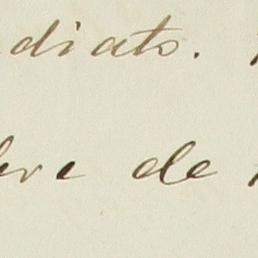 diato.
bre de